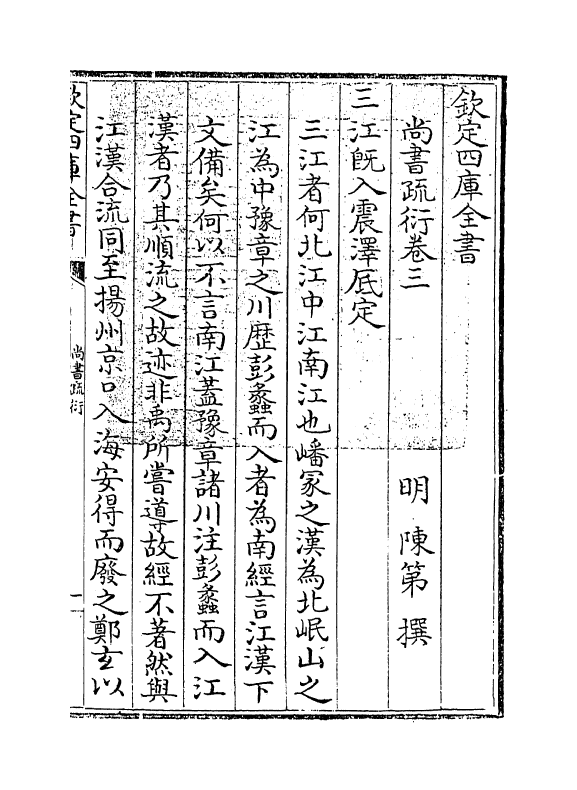 欽定四庫全書
尚書疏衍卷三
明 陳第 撰
三江旣入震澤厎定
三江者何北江中江南江也嶓冢之漢為北岷山之
江為中豫章之川歴彭蠡而入者為南經言江漢下
文備矣何以不言南江蓋豫章諸川注彭蠡而入江
漢者乃其順流之故迹非禹所嘗導故經不著然與
江漢合流同至揚州京口入海安得而廢之鄭玄以
欽定四庫全書
尚書疏衍
一